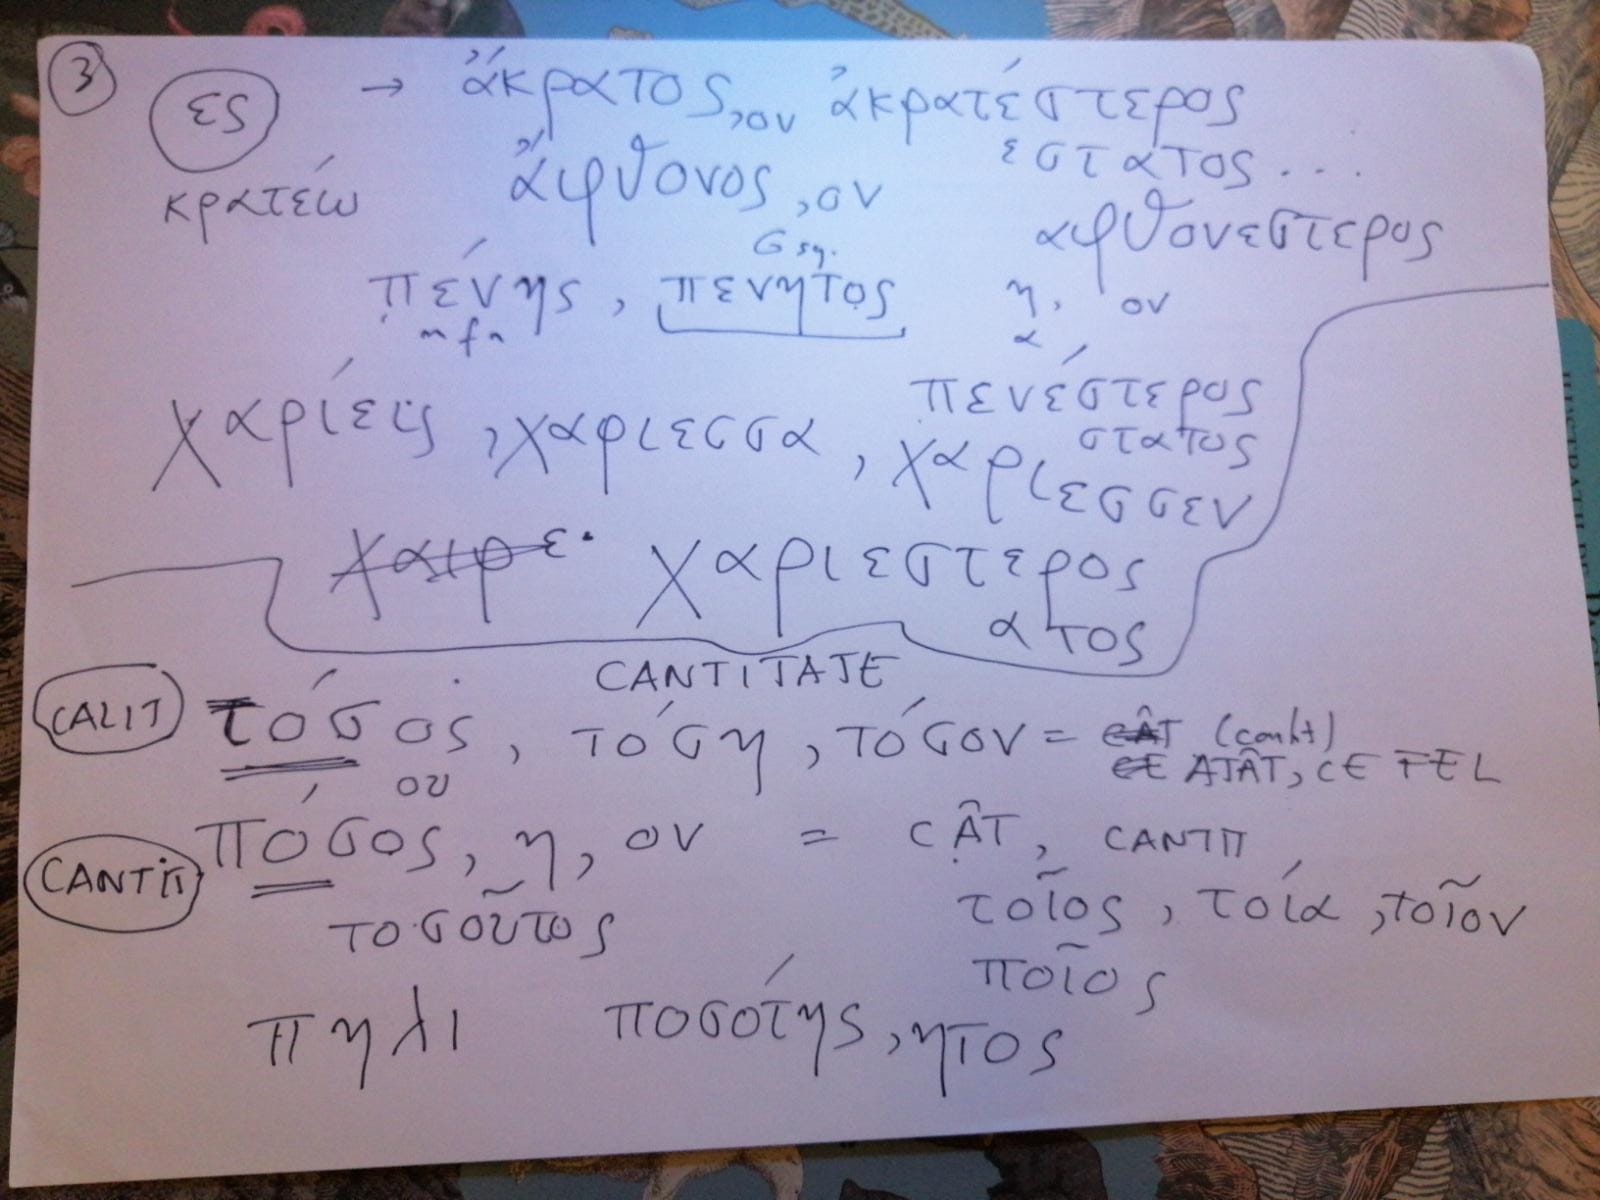 3
ες → ἄκρατος, ον ἀκρατέστερος
εστατος...
κρατέω ἄφθονος, ον
αφθονεστερος
G sg.
πένης, πενητος η, ον
m f n α
πενέστερος
στατος
χαρίεις, χαριεσσα, χαριεσσεν
χαιρε. χαριεστερος
ατος
CANTITATE
CALIT τόσος, τόση, τόσον = CÂT (cantit)
ου CE ATÂT, CE FEL
CANTIT πόσος, η, ον = CÂT, CANTIT
τοσοῦτος τοῖος, τοία, τοῖον
ποῖος
πηλι ποσοτής, ητος